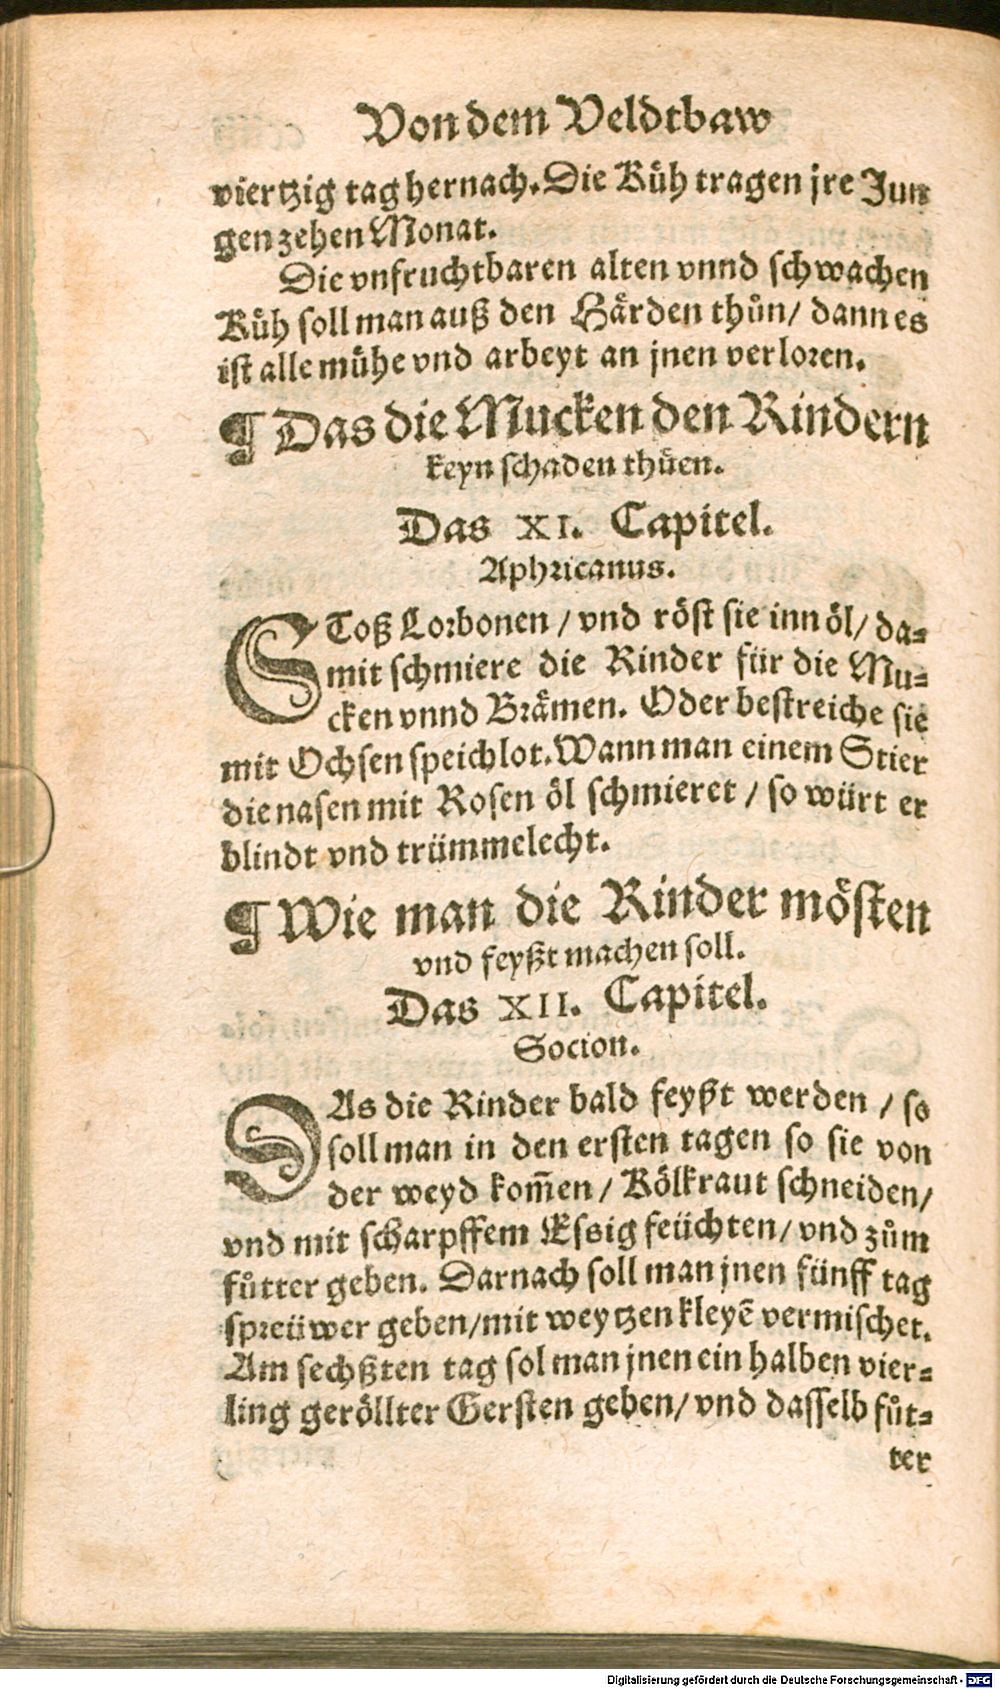 Von dem Veldtbaw
viertzig tag hernach. Die Küh tragen jre Jun
gen zehen Monat.
Die vnfruchtbaren alten vnnd schwachen
Küh soll man auß den Härden thůn/ dann es
ist alle mühe vnd arbeyt an jnen verloren.
¶ Das die Mucken den Rindern
keyn schaden thüen.
Das XI. Capitel.
Aphricanus.
SToß Lorbonen / vnd röst sie inn öl/ da-
mit schmiere die Rinder für die Mu-
cken vnnd Brämen. Oder bestreiche sie
mit Ochsen speichlot. Wann man einem Stier
die nasen mit Rosen öl schmieret / so würt er
blindt vnd trümmelecht.
¶ Wie man die Rinder mösten
vnd feyßt machen soll.
Das XII. Capitel.
Socion.
DAs die Rinder bald feyßt werden / so
soll man in den ersten tagen so sie von
der weyd kom̃en / Kölkraut schneiden/
vnd mit scharpffem Essig feüchten/ vnd zům
fůtter geben. Darnach soll man jnen fünff tag
spreüwer geben/mit weytzen kleyẽ vermischet.
Am sechßten tag sol man jnen ein halben vier-
ling geröllter Gersten geben/ vnd dasselb fůt-
ter
Digitalisierung gefördert durch die Deutsche Forschungsgemeinschaft - DFG